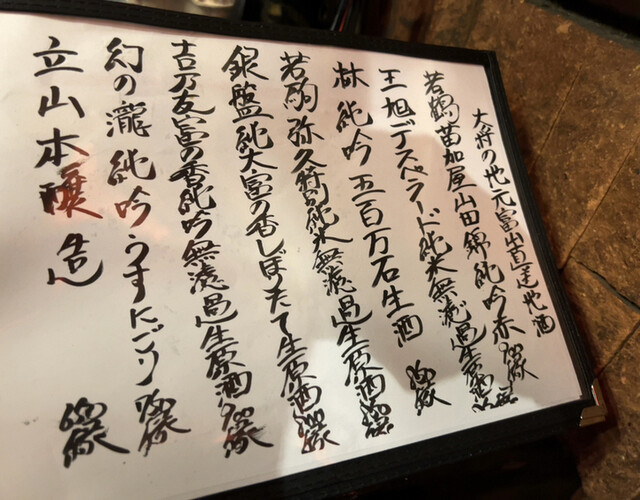 大将の地元富山直送地酒
若鶴苗加屋山田錦純吟赤
王旭デスペラード純米無濾過生原酒
林純吟五百万石生酒
若駒弥久純米無濾過生原酒
銀盤純大富の香しぼりたて生原酒
吉乃友富の香純吟無濾過生原酒
幻の瀧純吟うすにごり
立山本醸造